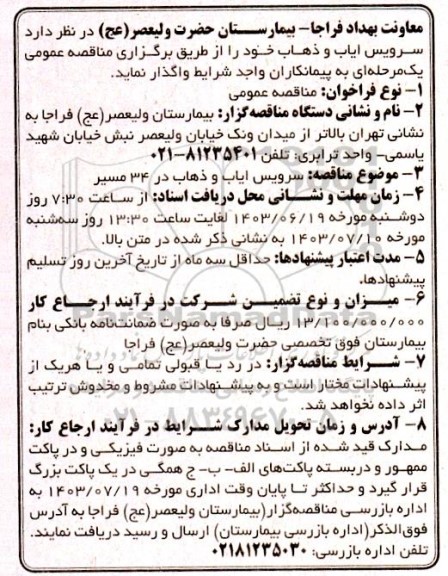 معاونت بهداد فراجا- بیمارستان حضرت ولیعصر(عج) در نظر دارد
سرویس ایاب و ذهاب خود را از طریق برگزاری مناقصه عمومی
یک‌مرحله‌ای به پیمانکاران واجد شرایط واگذار نماید.
۱- نوع فراخوان: مناقصه عمومی
۲- نام و نشانی دستگاه مناقصه‌گزار: بیمارستان ولیعصر(عج) فراجا به
نشانی تهران بالاتر از میدان ونک خیابان ولیعصر نبش خیابان شهید
یاسمی- واحد ترابری: تلفن ۸۱۲۳۵۴۰۱-۰۲۱
۳- موضوع مناقصه: سرویس ایاب و ذهاب در ۳۴ مسیر
۴- زمان مهلت و نشانی محل دریافت اسناد: از ساعت ۷:۳۰ روز
دوشنبه مورخه ۱۴۰۳/۰۶/۱۹ لغایت ساعت ۱۳:۳۰ روز سه‌شنبه
مورخه ۱۴۰۳/۰۷/۱۰ به نشانی ذکر شده در متن بالا.
۵- مدت اعتبار پیشنهادها: حداقل سه ماه از تاریخ آخرین روز تسلیم
پیشنهادها.
۶- میزان و نوع تضمین شرکت در فرآیند ارجاع کار
۱۳/۱۰۰/۰۰۰/۰۰۰ ریال صرفا به صورت ضمانت‌نامه بانکی بنام
بیمارستان فوق تخصصی حضرت ولیعصر(عج) فراجا
۷- شرایط مناقصه‌گزار: در رد یا قبولی تمامی و یا هریک از
پیشنهادات مختار است و به پیشنهادات مشروط و مخدوش ترتیب
اثر داده نخواهد شد.
۸- آدرس و زمان تحویل مدارک شرایط در فرآیند ارجاع کار:
مدارک قید شده از اسناد مناقصه به صورت فیزیکی و در پاکت
ممهور و دربسته پاکت‌های الف- ب- ج همگی در یک پاکت بزرگ
قرار گیرد و حداکثر تا پایان وقت اداری مورخه ۱۴۰۳/۰۷/۱۹ به
اداره بازرسی مناقصه‌گزار(بیمارستان ولیعصر(عج) فراجا به آدرس
فوق‌الذکر(اداره بازرسی بیمارستان) ارسال و رسید دریافت نمایند.
تلفن اداره بازرسی: ۰۲۱۸۱۲۳۵۰۳۰